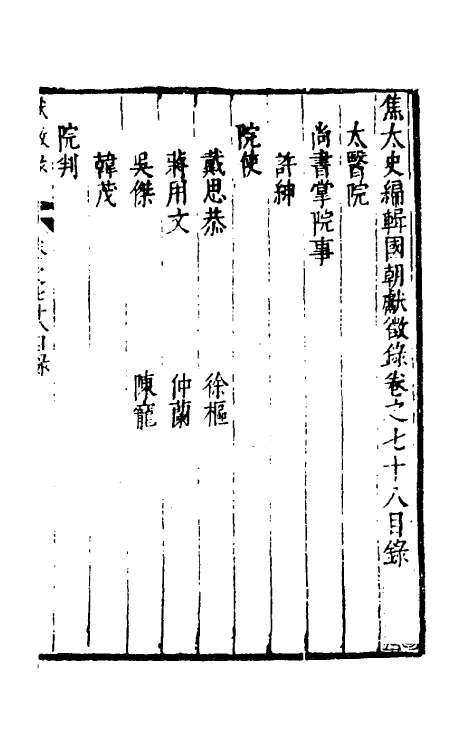 焦太史編輯國朝獻徵錄卷之七十八目錄
太醫院
尚書掌院事
許紳
院使
戴思恭 徐樞
蔣用文 仲蘭
吳傑 陳寵
韓茂
院判